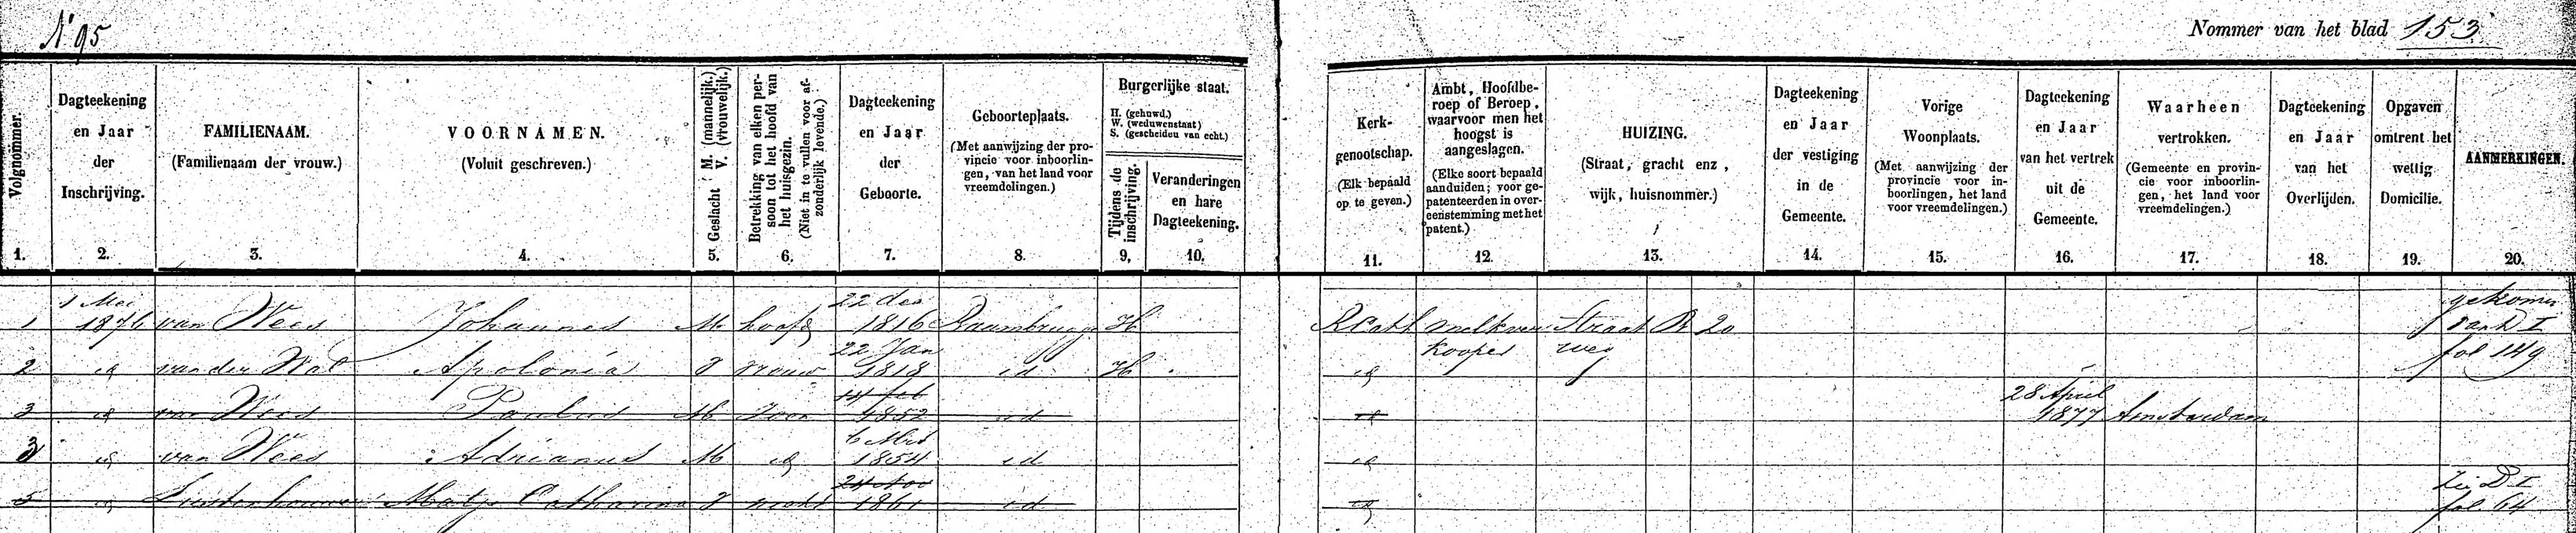 N. 95
Nommer van het blad 153
Volgnommer.
1.
Dagteekening
en Jaar
der
Inschrijving.
2.
FAMILIENAAM.
(Familienaam der vrouw.)
3.
VOORNAMEN.
(Voluit geschreven.)
4.
Geslacht M. (mannelijk.)
V. (vrouwelijk.)
5.
Betrekking van elken per-
soon tot het hoofd van
het huisgezin.
(Niet in te vullen voor af-
zonderlijk levende.)
6.
Dagteekening
en Jaar
der
Geboorte.
7.
Geboorteplaats.
(Met aanwijzing der pro-
vincie voor inboorlin-
gen, van het land voor
vreemdelingen.)
8.
Burgerlijke staat.
H. (gehuwd.)
W. (weduwenstaat)
S. (gescheiden van echt.)
Tijdens de
inschrijving.
9.
Veranderingen
en hare
Dagteekening.
10.
Kerk-
genootschap.
(Elk bepaald
op te geven.)
11.
Ambt, Hoofdbe-
roep of Beroep,
waarvoor men het
hoogst is
aangeslagen.
(Elke soort bepaald
aanduiden; voor ge-
patenteerden in over-
eenstemming met het
patent.)
12.
HUIZING.
(Straat, gracht enz,
wijk, huisnommer.)
13.
Dagteekening
en Jaar
der vestiging
in de
Gemeente.
14.
Vorige
Woonplaats.
(Met aanwijzing der
provincie voor in-
boorlingen, het land
voor vreemdelingen.)
15.
Dagteekening
en Jaar
van het vertrek
uit de
Gemeente.
16.
Waarheen
vertrokken.
(Gemeente en provin-
cie voor inboorlin-
gen, het land voor
vreemdelingen.)
17.
Dagteekening
en Jaar
van het
Overlijden.
18.
Opgaven
omtrent het
wettig
Domicilie.
19.
AANMERKINGEN.
20.
1 Mei 22 dec gekomen
1 1876 van Wees Johannes M hoofd 1816 Baambrugge H R Cath melkver Straat B 20 van D I
22 Jan kooper weg fol 149
2 id van der Wal Apolonia V vrouw 1818 id H id
14 feb 28 April
3 id van Wees Paulus M Zoon 1852 id id 1877 Amsterdam
6 Mrt
3 id van Wees Adrianus M id 1854 id id
24 nov Zie D I
5 id Matje Catharina V nicht 1861 id id fol. 64